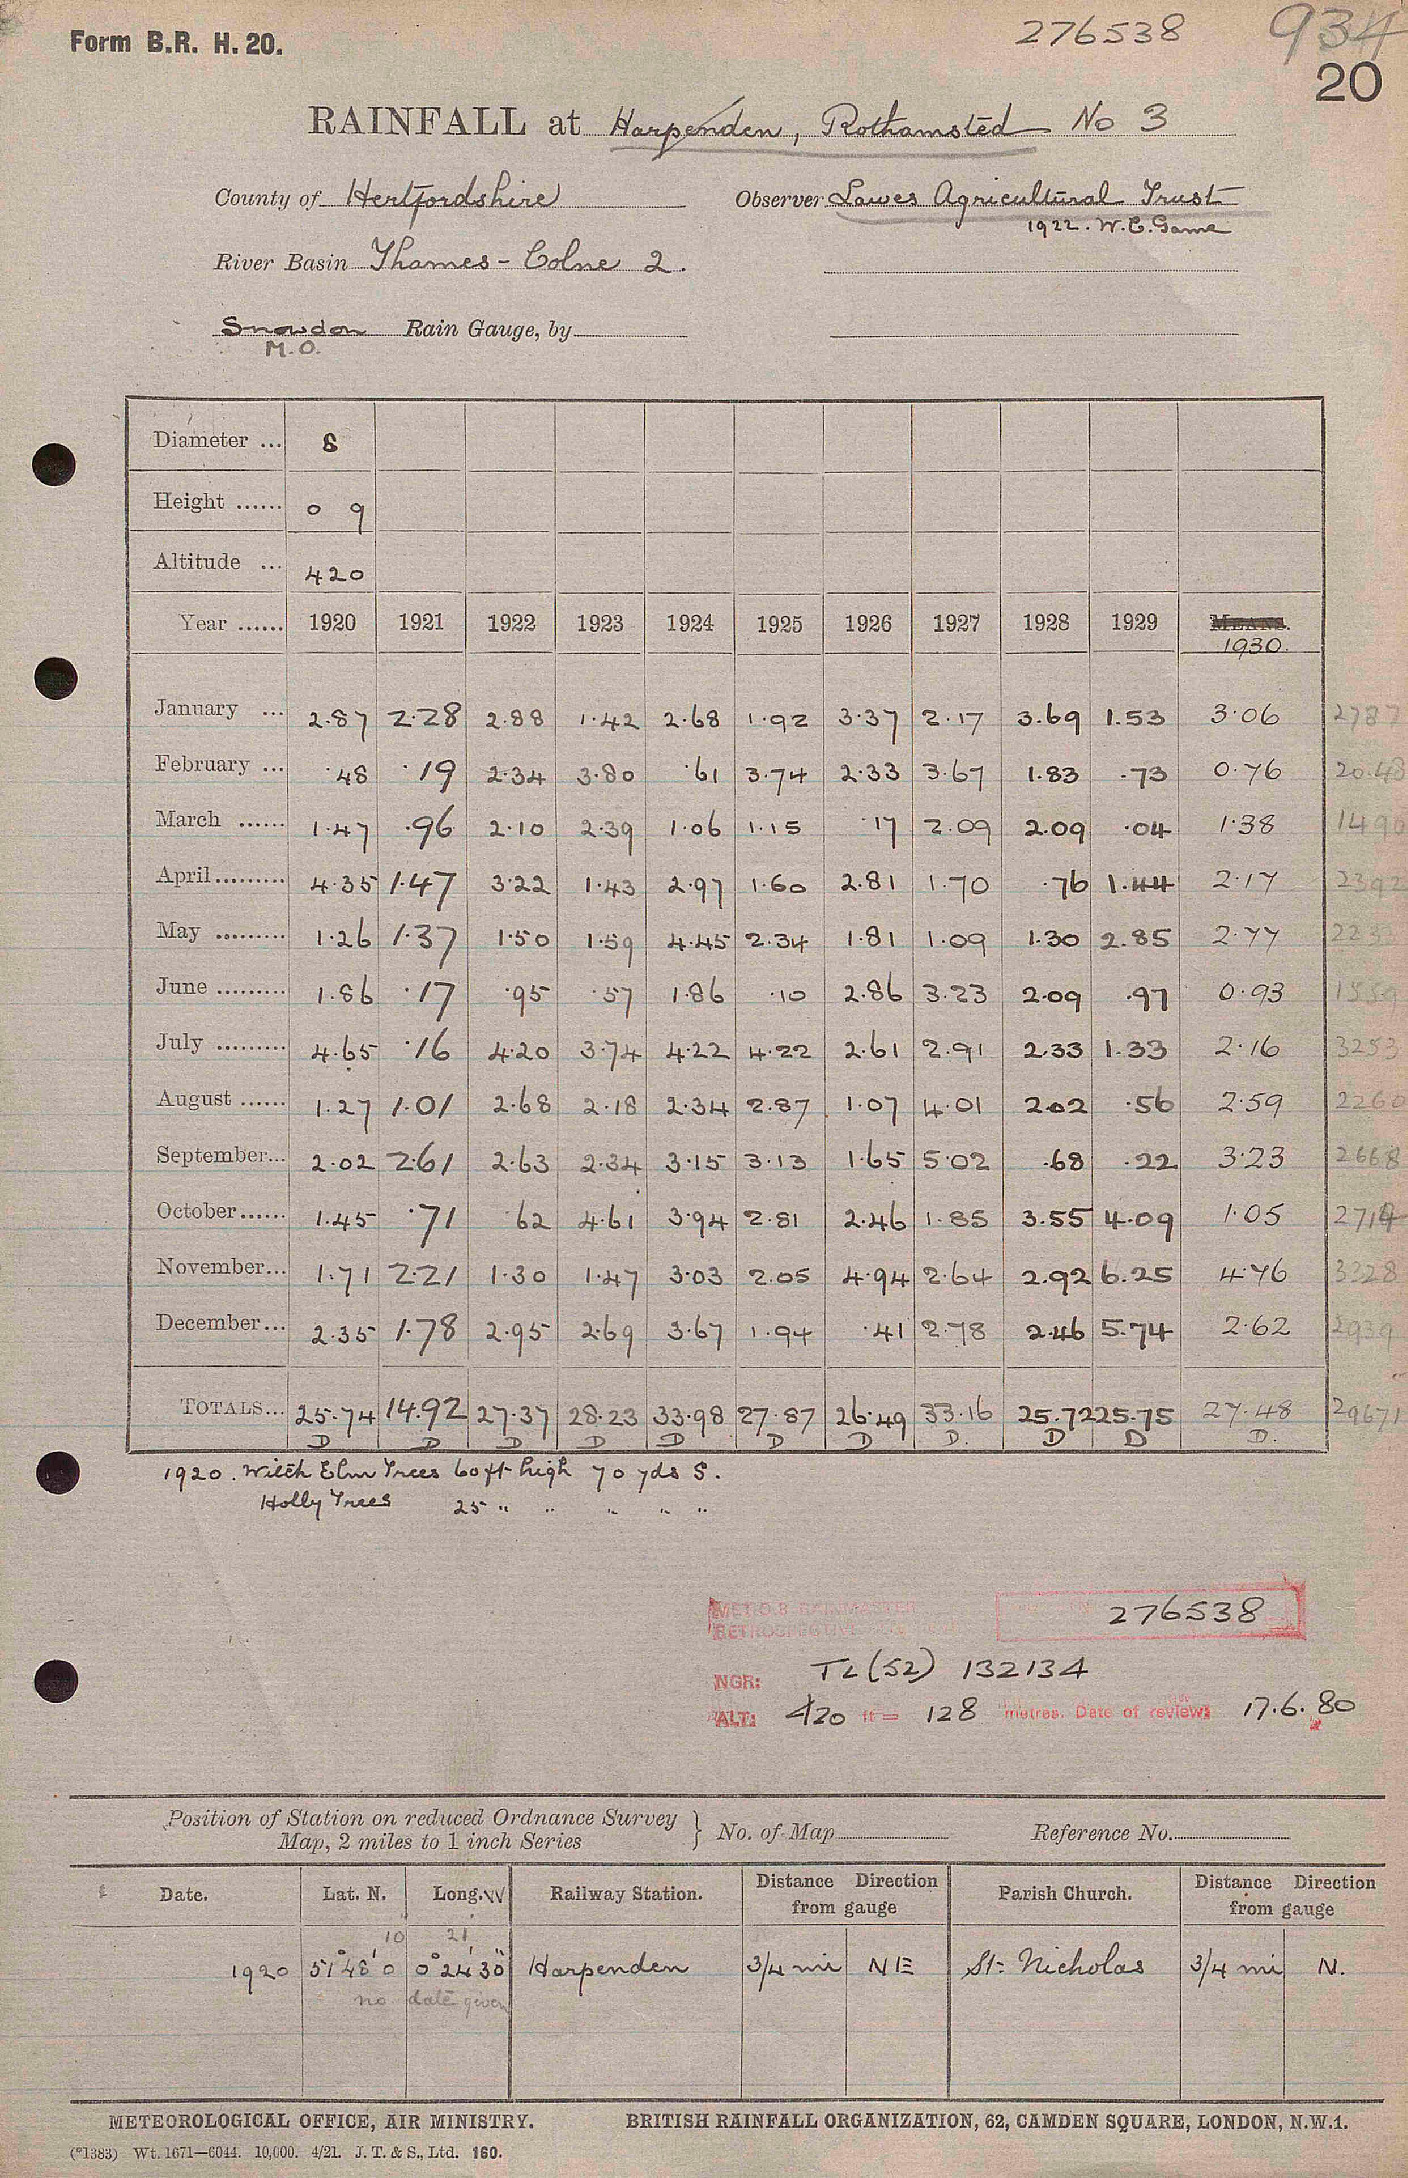 Form B.R. H. 20.
276538
934
20
RAINFALL at Harpenden, Rothamsted No 3
County of Hertfordshire Observer Lawes Agricultural Trust
1922. W.C. Game
River Basin Thames - Colne 2.
Snowdon Rain Gauge, by
M.O.
Diameter ... 8
Height ...... 0 9
Altitude ... 420
Year ...... 1920 1921 1922 1923 1924 1925 1926 1927 1928 1929 MEANS.
1930.
January ... 2.87 2.28 2.88 1.42 2.68 1.92 3.37 2.17 3.69 1.53 3.06 2787
February ... .48 .19 2.34 3.80 .61 3.74 2.33 3.67 1.83 .73 0.76 20.48
March ...... 1.47 .96 2.10 2.39 1.06 1.15 .17 2.09 2.09 .04 1.38 1490
April......... 4.35 1.47 3.22 1.43 2.97 1.60 2.81 1.70 .76 1.44 2.17 2392
May ......... 1.26 1.37 1.50 1.59 4.45 2.34 1.81 1.09 1.30 2.85 2.77
June ......... 1.86 .17 .95 .57 1.86 .10 2.86 3.23 2.09 .97 0.93 1559
July ......... 4.65 .16 4.20 3.74 4.22 4.22 2.61 2.91 2.33 1.33 2.16 3253
August ...... 1.27 1.01 2.68 2.18 2.34 2.87 1.07 4.01 2.02 .56 2.59 2260
September... 2.02 2.61 2.63 2.34 3.15 3.13 1.65 5.02 .68 .22 3.23 2668
October...... 1.45 .71 .62 4.61 3.94 2.81 2.46 1.85 3.55 4.09 1.05 2714
November... 1.71 2.21 1.30 1.47 3.03 2.05 4.94 2.64 2.92 6.25 4.76 3328
December... 2.35 1.78 2.95 2.69 3.67 1.94 .41 2.78 2.46 5.74 2.62 2939
TOTALS... 25.74 14.92 27.37 28.23 33.98 27.87 26.49 33.16 25.72 25.75 27.48 29671
D D D D D D D D. D D D.
1920. Witch Elm Trees 60 ft high 70 yds S.
Holly Trees 25 " " " " "
MET O.8 RAINMASTER
RETROSPECTIVE
276538
NGR: TL (52) 132134
ALT: 420 ft = 128 metres. Date of review: 17.6.80
Position of Station on reduced Ordnance Survey
Map, 2 miles to 1 inch Series } No. of Map Reference No.
Date. Lat. N. Long. W Railway Station. Distance Direction from gauge Parish Church. Distance Direction from gauge
10 21
1920 51° 48' 0 0° 24' 30" Harpenden 3/4 mi NE St: Nicholas 3/4 mi N.
no date given
METEOROLOGICAL OFFICE, AIR MINISTRY. BRITISH RAINFALL ORGANIZATION, 62, CAMDEN SQUARE, LONDON, N.W.1.
(*1383) Wt. 1671—6044. 10,000. 4/21. J. T. & S., Ltd. 160.